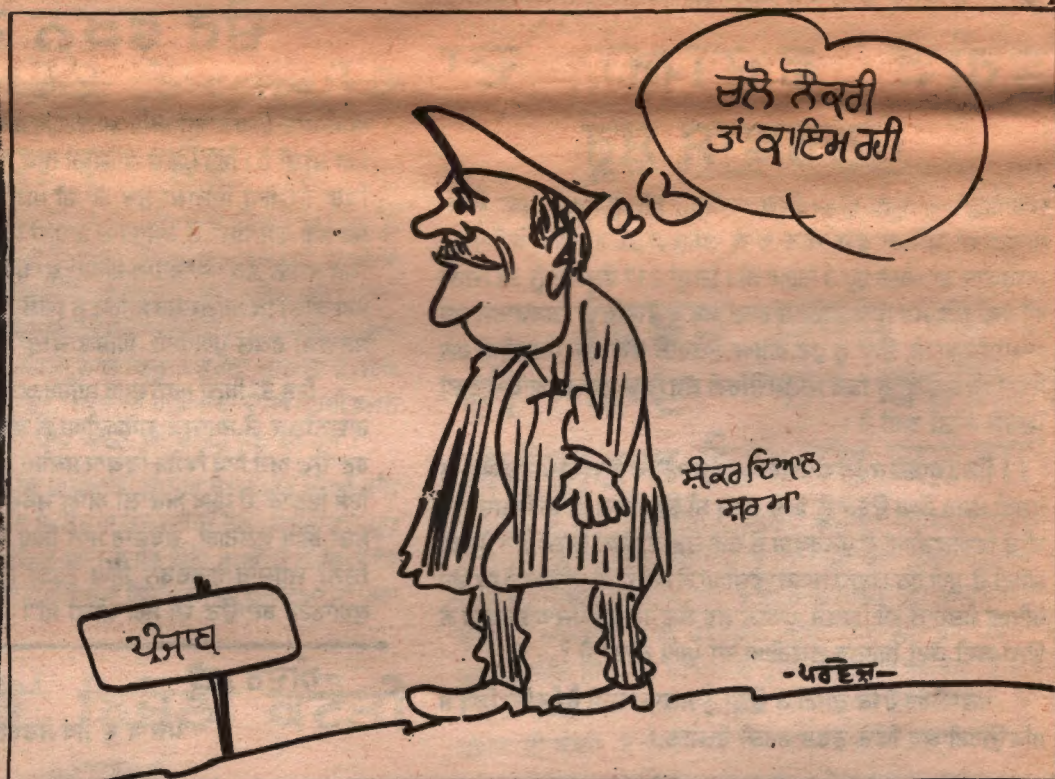 ਚਲੋ ਨੌਕਰੀ
ਤਾਂ ਕਾਇਮ ਰਹੀ
ਸ਼ੰਕਰ ਦਿਆਲ
ਸ਼ਰਮਾ
ਪੰਜਾਬ
-ਪਰਵੇਜ਼-